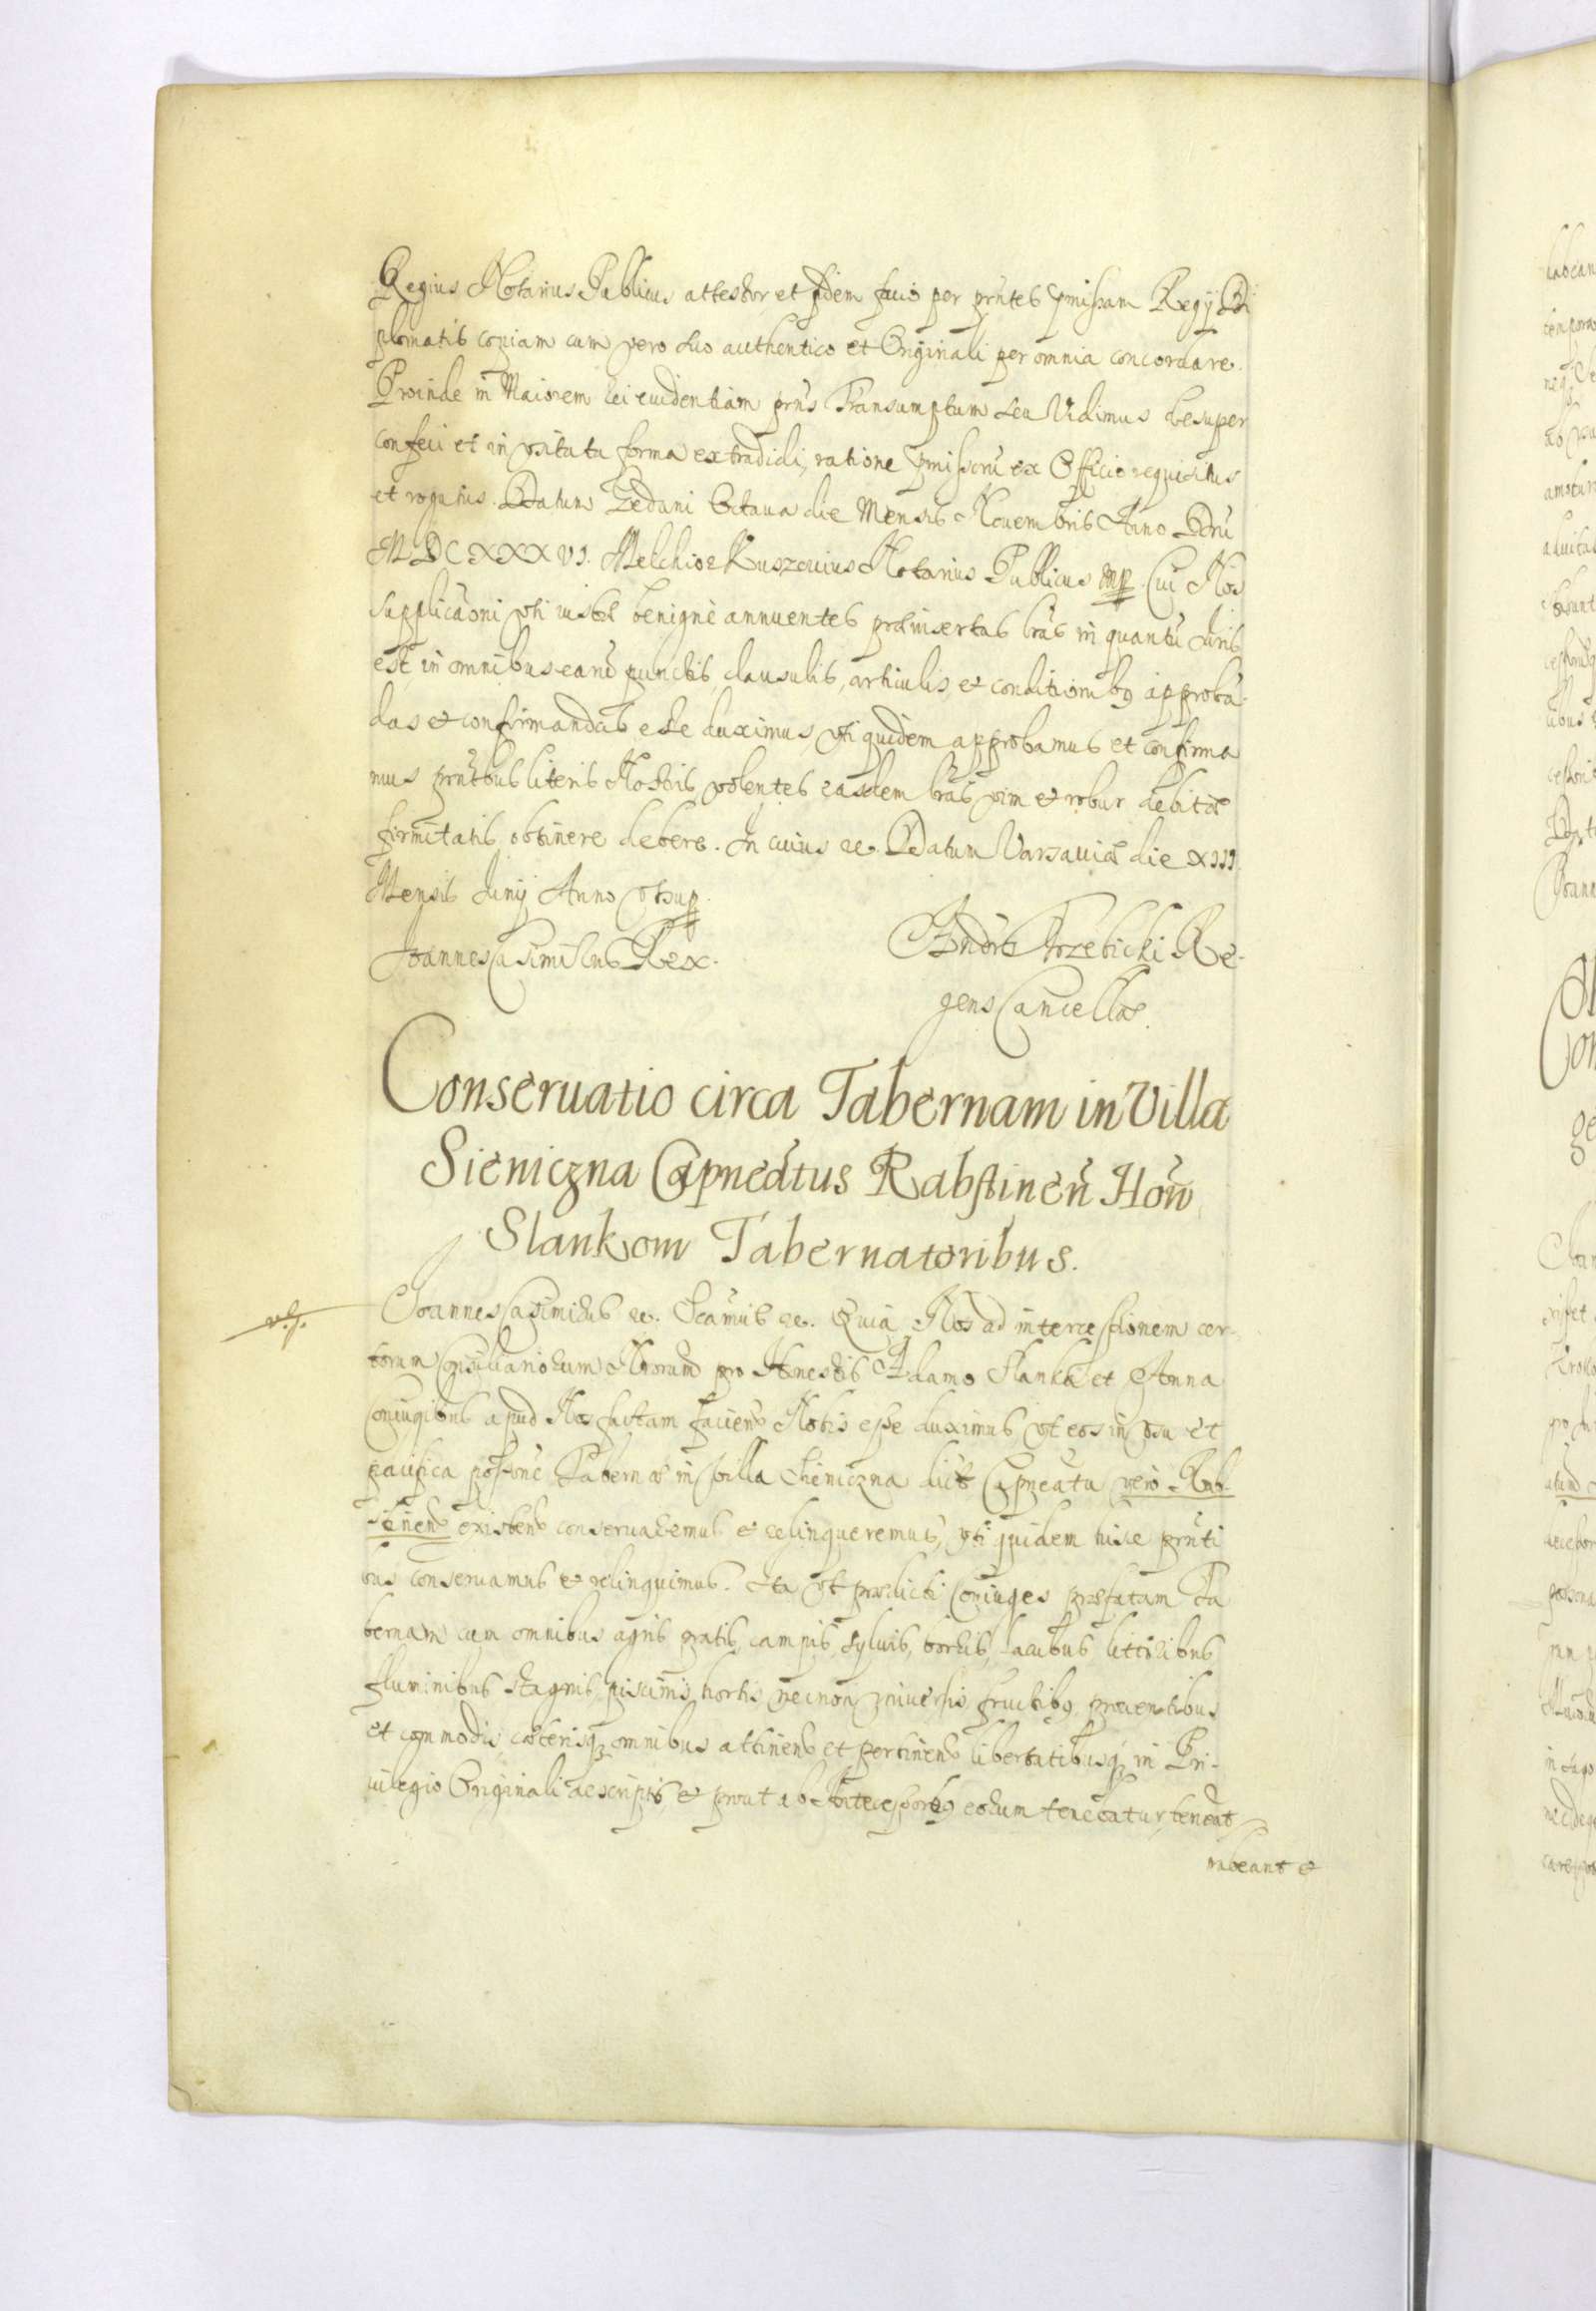 Regius Notarius Publicus attestor, et fidem facio per pñtes pmissam Regij Di
plomatis copiam cum vero suo authentico et Originali per omnia concordare.
Proinde in Maiorem rei euidentiam pñs Transumptum seu Vidimus desuper
confeci et in vsitata forma extradidi, ratione pmissorũ ex Officio requisitus
et rogatus. Datum Gedani Octaua die Mensis Nouembris Anno Dñi
MDCXXXVI. Melchior Ruszouius Notarius Publicus mp. Cui Nos
supplicaõni vti iustæ benignè annuentes præinsertas lr̃as in quantũ Juris
est in omnibus earũ punctis, clausulis, articulis, et conditionibq approbã
das et confirmandas esse duximus, vti quidem approbamus et confirma
mus pñtibus literis Nostris, volentes easdem lr̃as vim et robur debitæ
firmitatis obtinere debere. In cuius &c. Datum Varsauiæ die XIII.
Mensis Junij Anno vt sup.
Joannes Casimirus Rex.
Andreas Trzebicki Re-
gens Cancellãe.
Conseruatio circa Tabernam in Villa
Sieniczna Capneãtus Rabstineñ Hoñ
Slankom Tabernatoribus.
Joannes Casimirus &c. &c. Quia Nos ad intercessionem cer-
torum Consiliariorum Nrorum pro Honestis Adamo Slanka et Anna
Coniugibus apud Nos factam faciend Nobis esse duximus, vt eos in vsu et
pacifica possõne Tabernæ in villa Sieniczna dict Capneatu vero Rab-
stinens existens conseruaremus et relinqueremus, vti quidem hisce pñti
bus conseruamus et relinquimus. Ita vt prædicti Coniuges præfatam Ta
bernam cum omnibus agris pratis, campis, syluis, lacubus littoribus
fluminibus stagnis, piscinis hortis necnon vniuersis fructibq prouentibus
et commodis, cæterisq omnibus attinens et pertinens libertatibusq in Pri-
uilegio Originali descriptis et prout ab Antecessoribq eorum tenebatur, teneãt
habeant et